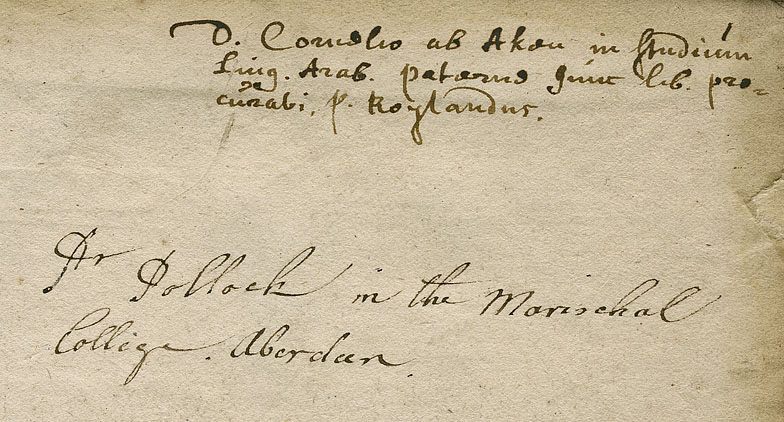 D. Cornelio ab Aken in Studium
Ling. Arab. paterne hunc lib. pro-
curavi. p. Roylandus.
Dr Pollock in the Marischal
College. Aberdeen.